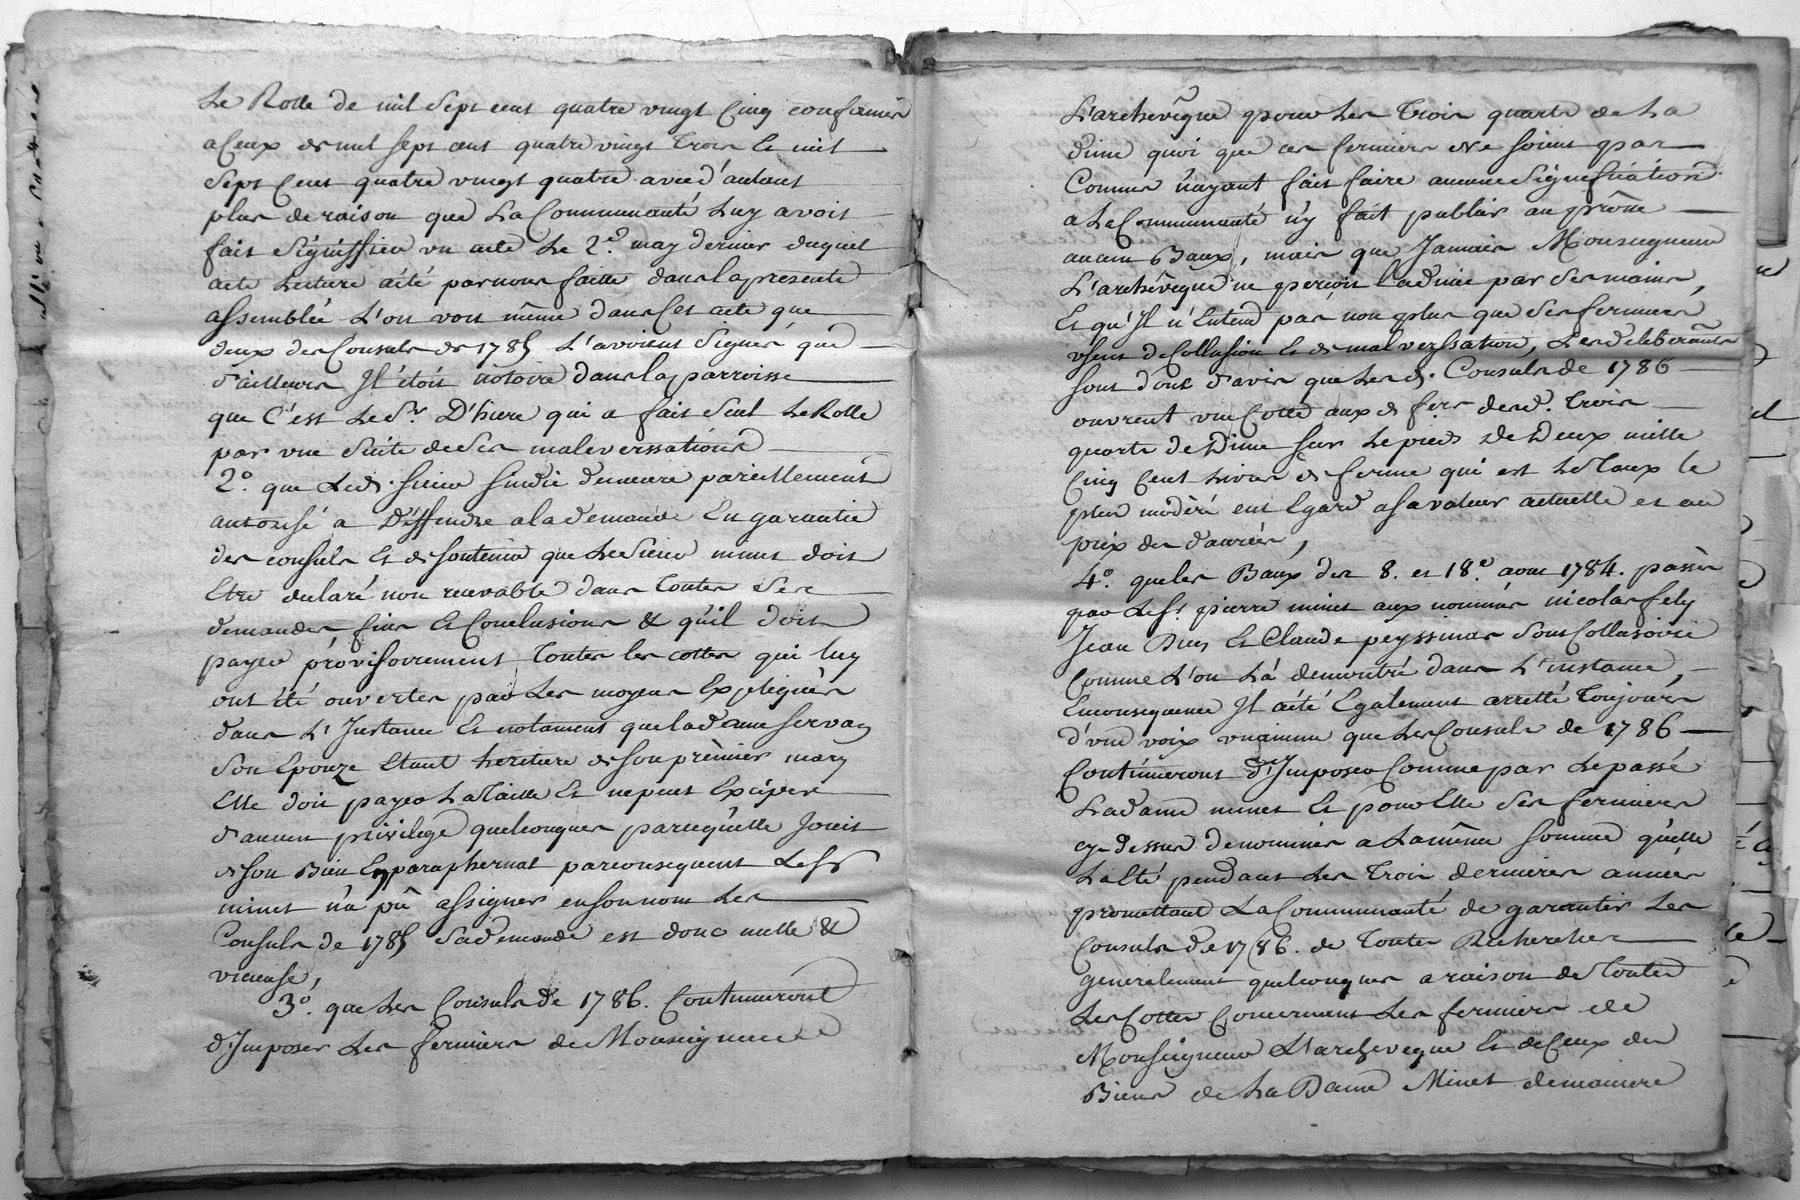 Le Rolle de mil sept cent quatre vingt cinq conformés
a ceux de mil sept cent quatre vingt trois et mil
sept cent quatre vingt quatre avec d'autant
plus de raison que La Communauté Luy avoit
fait signiffier un acte Le 2.e may dernier duquel
acte Lecture a été par nous faitte dans la presente
assemblée L'on voit même dans cet acte que
deux des Consuls de 1785 L'avoient signés que
d'ailleurs Il étoit notoire dans la parroisse
que C'est Le Sr. D'hiere qui a fait seul Le Rolle
par une suite de ses malversations
2.o que Led. sieur sindic demeure pareillement
autorisé a Déffendre a la demande En garantie
des consuls et de soutenir que Le sieur minet doit
Etre declaré non recevable dans toutes ses
demandes fins et Conclusions & qu'il doit
payer provisoirement toutes les cottes qui luy
ont été ouvertes par Les moyens Expliqués
dans L'Instance Et notament que la dame servan
son Epouze Etant heritiere de son prémier mary
Elle doit payer La taille Et ne peut Exciper
d'aucun privilege quelconques parcequ'elle Jouit
de son Bien En paraphernal par consequent Le sr
minet n'a pû assigner en son nom Les
Consuls de 1785 sa demande est donc nulle &
vicieuse,
3.o que Les Consuls de 1786. Continueront
d'Imposer Les fermiers de Monseigneur
L'archevêque pour Les trois quarts de La
dime quoi que ces fermiers ne soient pas
Connus n'ayant fait faire aucune signification
a La Communauté n'y fait publier au prône
aucun Baux, mais que Jamais Monseigneur
L'archevêque ne perçoit la dime par ses mains,
Et qu'Il n'Entend pas non plus que ses fermiers
usent de Collusion Et de malverssation, Les deliberants
sont donc d'avis que Les d. Consuls de 1786
ouvrent une Cotte aux d. fers desd. trois
quarts de Dime sur Le pied De Deux mille
Cinq Cent Livres de ferme qui est Le taux le
plus modéré eut Egard a sa valeur actuelle et au
prix des danrées,
4.o que les Baux des 8. et 18.e aout 1784. passés
par Le sr. pierre minet aux nommés nicolas fely
Jean Et Claude peyssinas sont Collusoires
Comme L'on L'a demontré dans L'instance,
En consequence Il a été Egalement arretté toujours
d'une voix unanime que Les Consuls de 1786
Continüeront d'Imposer Comme par Le passé
La dame minet Et pour Elle ses fermiers
cy-dessus denommés a La même somme qu'elle
L'a Eté pendant Les trois dernieres années
promettant La Communauté de garantir Les
Consuls de 1786. de toutes Recherches
generalement quelconques a raison de toutes
Les Cottes Concernant Les fermiers de
Monseigneur L'archeveque Et de Ceux des
Biens de La Dame Minet de maniere